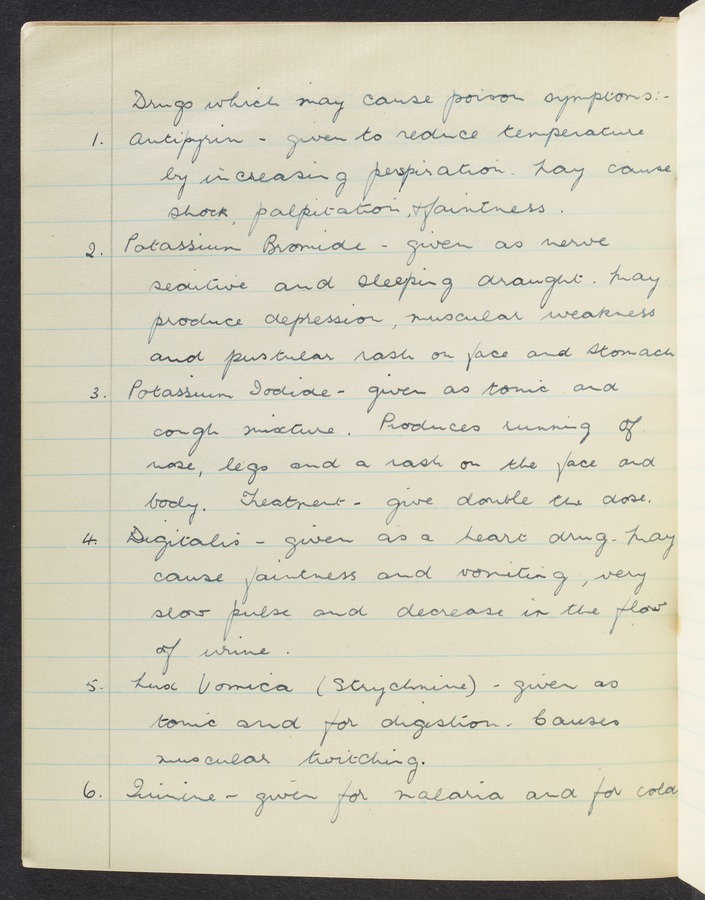 Drugs which may cause poison symptoms:-
1. Antipyrin - given to reduce temperature
by increasing perspiration. May cause
shock, palpitation, & faintness.
2. Potassium Bromide - given as nerve
seditive and sleeping draught. May
produce depression, muscular weakness
and pustular rash on face and stomach
3. Potassium Iodide - given as tonic and
cough mixture. Produces running of
nose, legs and a rash on the face and
body. Treatment - give double the dose.
4. Digitalis - given as a heart drug. May
cause faintness and vomiting, very
slow pulse and decrease in the flow
of urine.
5. Nux Vomica (Strychnine) - given as
tonic and for digestion. Causes
muscular twitching.
6. Quinine - given for malaria and for cold